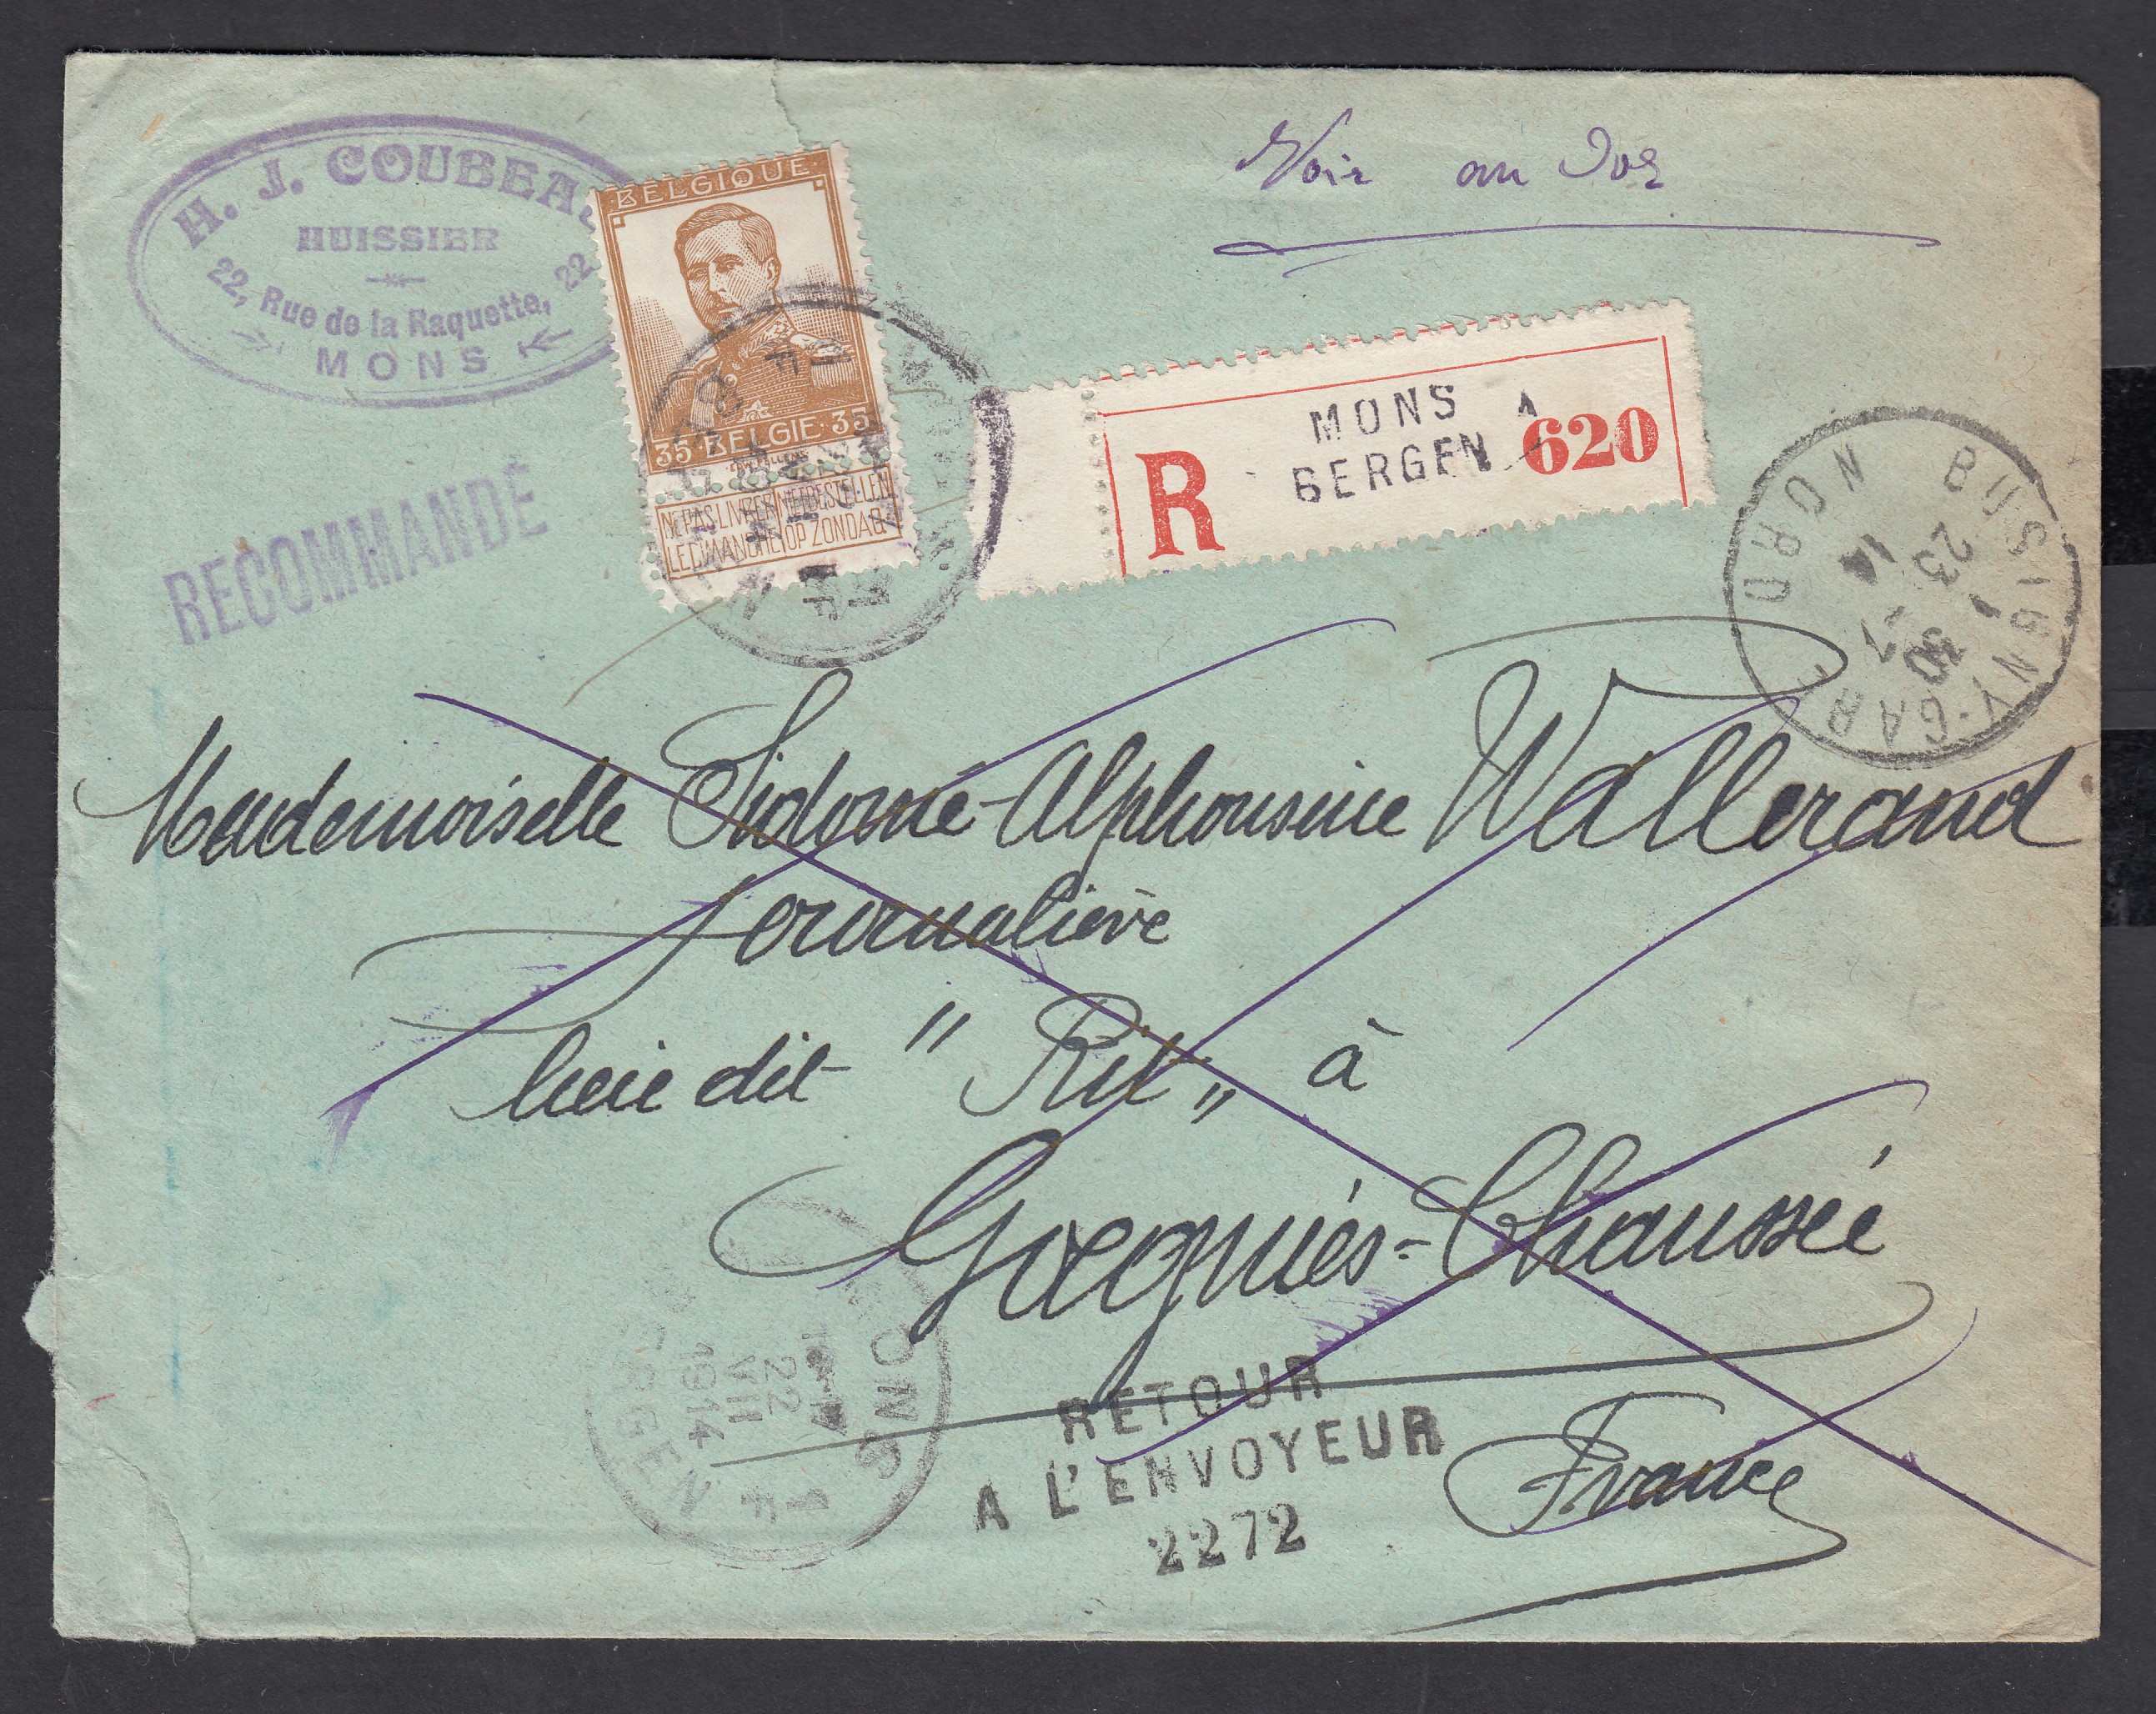 H. J. COUBEA
HUISSIER
22, Rue de la Raquette, 22
MONS
BELGIQUE
35 · BELGIE · 35
NE PAS LIVRER NIET BESTELLEN
LE DIMANCHE OP ZONDAG
Voir au Dos
RECOMMANDÉ
R
MONS
BERGEN
A
620
BUSIGNY-GARE NORD
23 - 7
14
Mademoiselle Sidonie-Alphonsine Wallerand
Journalière
lieu dit "Rit„ à
Goegnies-Chaussée
France
RETOUR
A L'ENVOYEUR
2272
22
VII
1914
1F